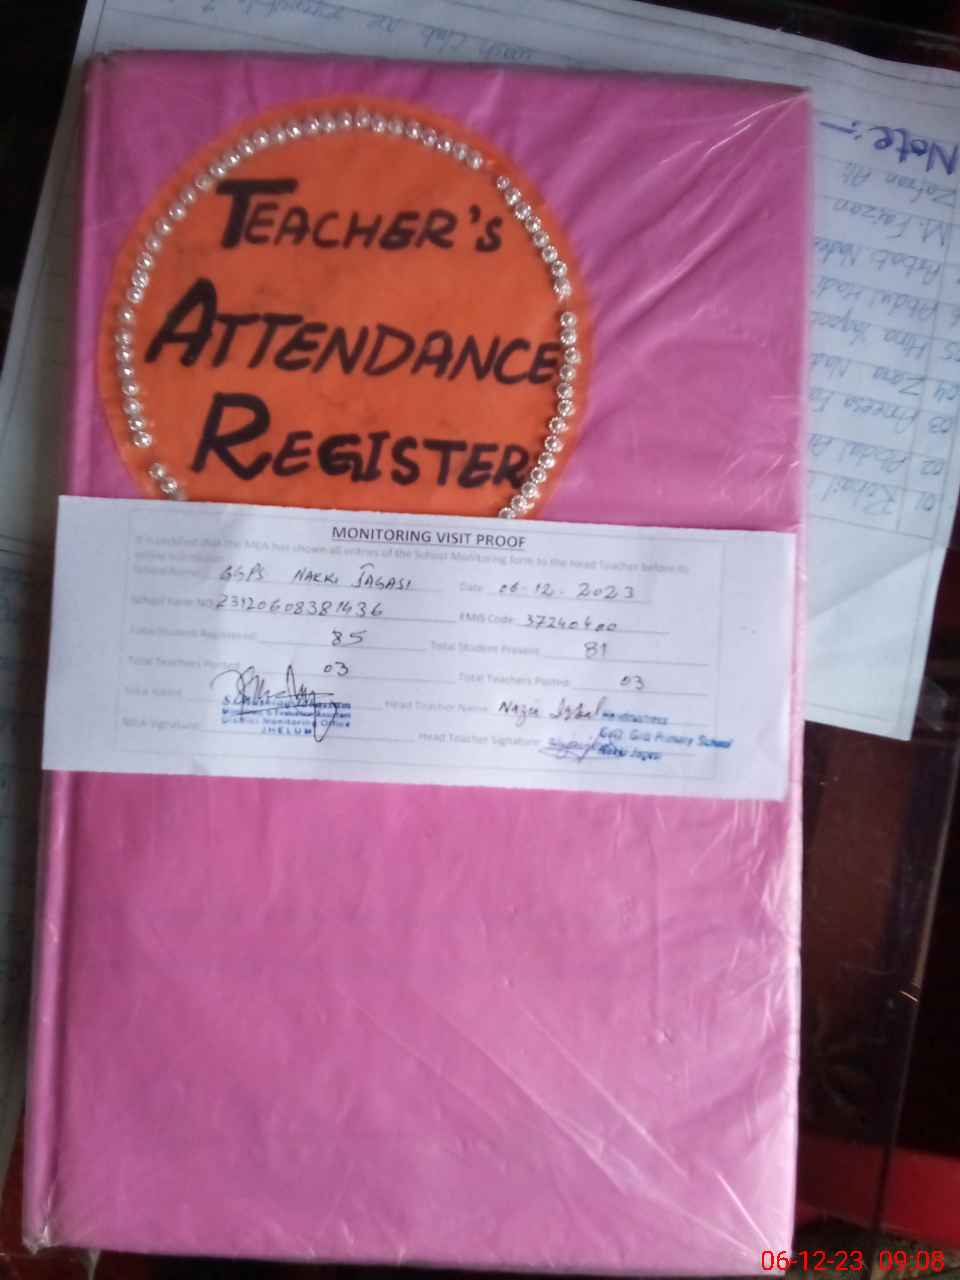 TEACHER'S
ATTENDANCE
REGISTER
MONITORING VISIT PROOF
It is certified that the MEA has shown all entries of the School Monitoring form to the Head Teacher before its
online submission.
School Name: GGPS NAKKI JAGASI Date 06-12-2023
School Form NO 23120608381436 EMIS Code: 37240400
Total Student Registered: 85 Total Student Present 81
Total Teachers Posted 03 Total Teachers Posted: 03
MEA Name Head Teacher Name Nazia Iqbal
Monitoring & Evaluation Assistant
District Monitoring Office
JHELUM
MEA Signature Head Teacher Signature
Headmistress
Govt Girls Primary School
Nakki Jagasi
Note:-
Zafran Ali
M. Faizan
Abdul Hadi
06-12-23 09:08